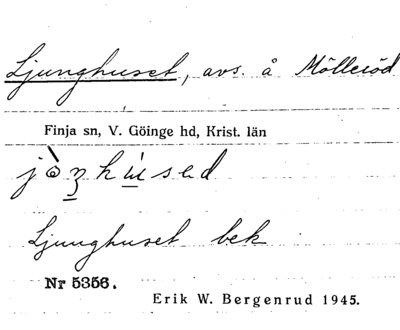 Ljunghuset, avs. å Mölleröd
Finja sn, V. Göinge hd, Krist. län
Ljunghuset bek
Nr 5356.
Erik W. Bergenrud 1945.